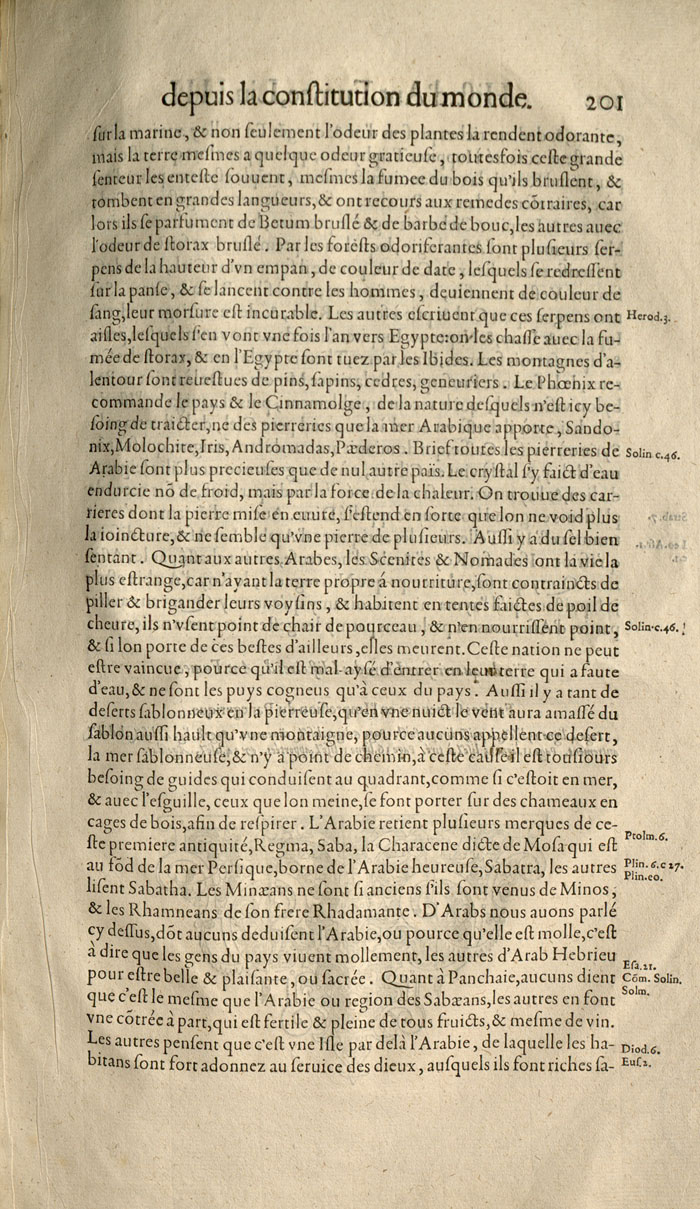 depuis la conſtitution du monde. 201
ſur la marine, & non ſeulement l'odeur des plantes la rendent odorante,
mais la terre meſmes a quelque odeur gratieuſe, toutesfois ceſte grande
ſenteur les enteſte ſouuent, meſmes la fumee du bois qu'ils bruſlent, &
tombent en grandes langueurs, & ont recours aux remedes cōtraires, car
lors ils ſe parfument de Betum bruſlé & de barbe de bouc, les autres auec
l'odeur de ſtorax bruſlé. Par les foreſts odoriferantes ſont pluſieurs ſer-
pens de la hauteur d'vn empan, de couleur de date, leſquels ſe redreſſent
ſur la panſe, & ſe lancent contre les hommes, deuiennent de couleur de
ſang, leur morſure eſt incurable. Les autres eſcriuent que ces ſerpens ont Herod.3.
aiſles, leſquels ſ'en vont vne fois l'an vers Egypte: on les chaſſe auec la fu-
mée de ſtorax, & en l'Egypte ſont tuez par les Ibides. Les montagnes d'a-
lentour ſont reueſtues de pins, ſapins, cedres, geneuriers. Le Phœnix re-
commande le pays & le Cinnamolge, de la nature deſquels n'eſt icy be-
ſoing de traicter, ne des pierreries que la mer Arabique apporte, Sando-
nix, Molochite, Iris, Andromadas, Pæderos. Brief toutes les pierreries de Solin c.46.
Arabie ſont plus precieuſes que de nul autre païs. Le cryſtal ſ'y faict d'eau
endurcie nō de froid, mais par la force de la chaleur. On trouue des car-
rieres dont la pierre miſe en euure, ſ'eſtend en ſorte que lon ne void plus
la ioincture, & ne ſemble qu'vne pierre de pluſieurs. Auſſi y a du ſel bien
ſentant. Quant aux autres Arabes, les Scenites & Nomades ont la vie la
plus eſtrange, car n'ayant la terre propre á nourriture, ſont contraincts de
piller & brigander leurs voyſins, & habitent en tentes faictes de poil de
cheure, ils n'vſent point de chair de pourceau, & n'en nourriſſent point, Solin c.46.
& ſi lon porte de ces beſtes d'ailleurs, elles meurent. Ceſte nation ne peut
eſtre vaincue, pource qu'il eſt mal-ayſé d'entrer en leur terre qui a faute
d'eau, & ne ſont les puys cogneus qu'à ceux du pays. Auſſi il y a tant de
deſerts ſablonneux en la pierreuſe, qu'en vne nuict le vent aura amaſſé du
ſablon auſſi hault qu'vne montaigne, pource aucuns appellent ce deſert,
la mer ſablonneuſe, & n'y a point de chemin, à ceſte cauſe il eſt touſiours
beſoing de guides qui conduiſent au quadrant, comme ſi c'eſtoit en mer,
& auec l'eſguille, ceux que lon meine, ſe font porter ſur des chameaux en
cages de bois, afin de reſpirer. L'Arabie retient pluſieurs merques de ce-
ſte premiere antiquité, Regma, Saba, la Characene dicte de Moſa qui eſt Ptolm.6.
au fōd de la mer Perſique, borne de l'Arabie heureuſe, Sabatra, les autres Plin.6.c 27.
Plin.eo.
liſent Sabatha. Les Minæans ne ſont ſi anciens ſ'ils ſont venus de Minos,
& les Rhamneans de ſon frere Rhadamante. D'Arabs nous auons parlé
cy deſſus, dōt aucuns deduiſent l'Arabie, ou pource qu'elle eſt molle, c'eſt
à dire que les gens du pays viuent mollement, les autres d'Arab Hebrieu Eſa.21.
pour eſtre belle & plaiſante, ou ſacrée. Quant à Panchaie, aucuns dient Cōm. Solin.
que c'eſt le meſme que l'Arabie ou region des Sabæans, les autres en font Solm.
vne cōtrée à part, qui eſt fertile & pleine de tous fruicts, & meſme de vin.
Les autres penſent que c'eſt vne Iſle par delà l'Arabie, de laquelle les ha- Diod.6.
bitans ſont fort adonnez au ſeruice des dieux, auſquels ils font riches ſa- Euſ2.